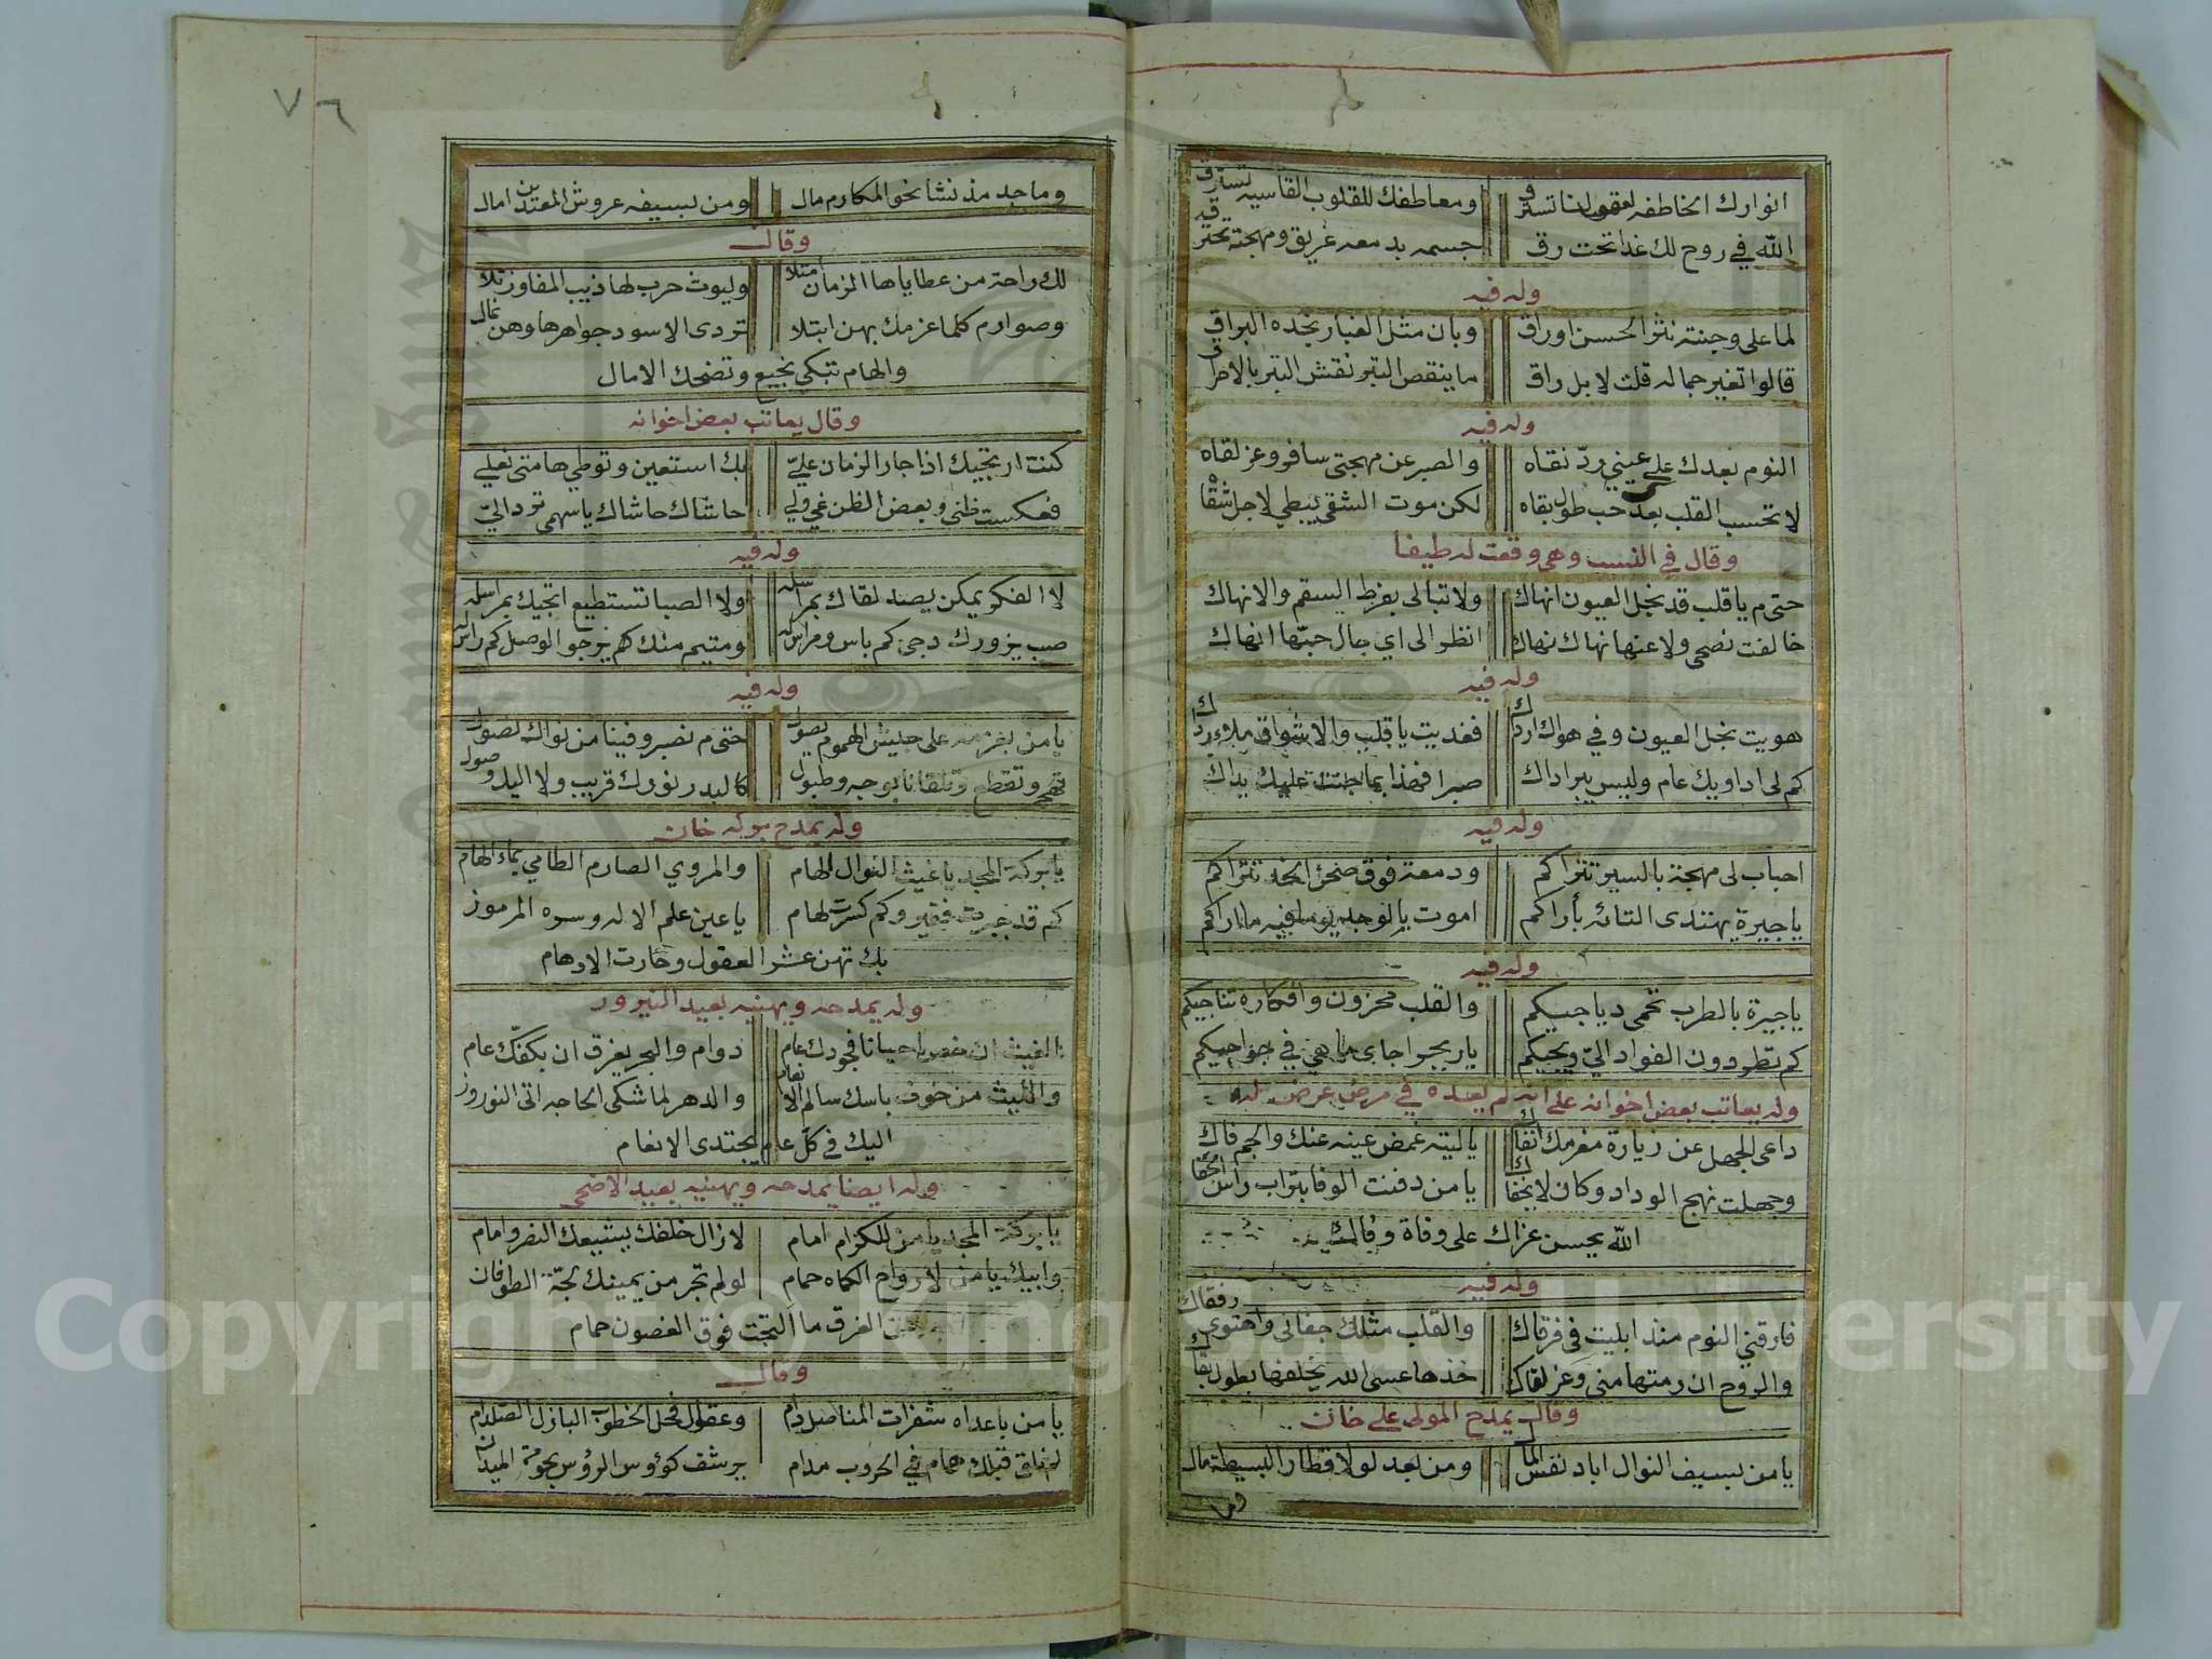 انوارك الخاطفه لعقولنا تسترق ومعاطفك للقلوب القاسيه تسترق
الله في روح لك غدا تحت رق جسمه بدمعه غريق ومهجته تحترق
وله فيه
لما على وجنته نثر الحسن اوراق وبان مثل الغبار بخده البراق
قالوا تغير جماله قلت لا بل راق ما ينقص التبر نقش التبر بالاحراق
وله فيه
النوم بعدك على عيني ردّ نقاه والصبر عن مهجتي سافر وعز لقاه
لا تحسب القلب بعدك حب طول بقاه لكن موت الشقي يبطي لاجل شقاه
وقال في النسيب وهي وقعت له طيفا
حتى م يا قلب قد بنجل العيون انهاك ولا تبالى بفرط السقم والانهاك
خالفت نصحي ولا عنها نهاك نهاك انظر الى اي حال حبها انهاك
وله فيه
هويت نجل العيون وفي هواك ارداك فغديت يا قلب والاشواق ملاء رداك
كم لى اداويك عام وليس يبرا داك صبرا فهذا بما جنت عليك يداك
وله فيه
احباب لى مهجة بالسير تتراكم ودمعة فوق صحن الخد تتراكم
يا جيرة يهتدى التائه بأراكم اموت بالوجد يوما فيه ما اراكم
وله فيه
يا جيرة بالطرب تحمى دياجيكم والقلب محزون وافكاره تناجيكم
كم تطردون الفواد اليّ ويجيكم
وله يعاتب بعض اخوانه على انه لم يعده في مرض عرض له
داعى الجهل عن زيارة مغرمك انفاك يا ليته غمض عينه عنك والجم فاك
وجهلت نهج الوداد وكان لا يخفاك يا من دفنت الوفا بتراب راس اخفاك
الله يحسن عزاك على وفاة وفاك
وله فيه
فارقني النوم منذ ابليت في فرقاك والقلب مثلك جفانى واهتوى رفقاك
والروح ان رمتها مني وعز لقاك خذها عسى الله يخلفها بطول بقاك
وقال يمدح المولى علي خان
يا من بسيف النوال اباد نفس المال ومن بعد لولا قطار البسيطة مال
ومن
٧٦
وماجد مذ نشا نحو المكارم مال ومن بسيفه عروش المعتدين امال
وقال
لك راحة من عطاياها الزمان امتلا وليوث حرب لها ذيب المفاوز تلا
وصوارم كلما عزمك بهن ابتلا تردى الاسود جواهرها وهن نمال
والهام تبكي نجيع وتضحك الامال
وقال يعاتب بعض اخوانه
كنت ارتجيك اذا جار الزمان عليّ بك استعين وتوطي هامتي نعلي
فعكست ظني وبعض الظن غي ولي حاشاك حاشاك يا سهمي ترد اليّ
وله فيه
لا الفكر يمكن يصد لقاك بمراسله ولا الصبا تستطيع اتجيك بمراسله
صب يزورك دجى كم باس ومراس له ومتيم منك كم يرجو الوصل كم راس له
وله فيه
يا من بعزمه على جيش الهموم نصول حتى م نصبر وفينا من نواك نصول
تهجر وتقطع وتلقانا بوجه وطبول كالبدر نورك قريب ولا اليه وصول
وله يمدح بركه خان
يا بركة المجد يا غيث النوال الهام والمروي الصارم الظامي بماء الهام
كم قد جبرت فقير وكم كسرت لهام يا عين علم الاله وسره المرموز
بك تهن عشر العقول وحارت الاوهام
وله يمدحه ويهنيه بعيد النيروز
الغيث ان خص احيانا فجودك عام دوام والبحر يغرق ان بكفّك عام
والليث من خوف باسك سالم الانعام والدهر لما شكى الحاجه اتى النوروز
اليك في كلّ عام يجتدى الانعام
وله ايضا يمدحه ويهنيه بعيد الاضحى
يا بركة المجد يا من للكرام امام لا زال خلفك يشيعك النصر وامام
وابيك يا من لارواح الكماه حمام لو لم تجر من يمينك لجّة الطوفان
الغرق ما التجت فوق الغصون حمام
وقال
يا من باعداه شفرات المناصل دام وعقول فحل الخطوب البازل الصلدام
لم نلق قبلك همام في الحروب مدام يرشف كؤوس الرؤس بحومة الميدان
Copyright © King Saud University